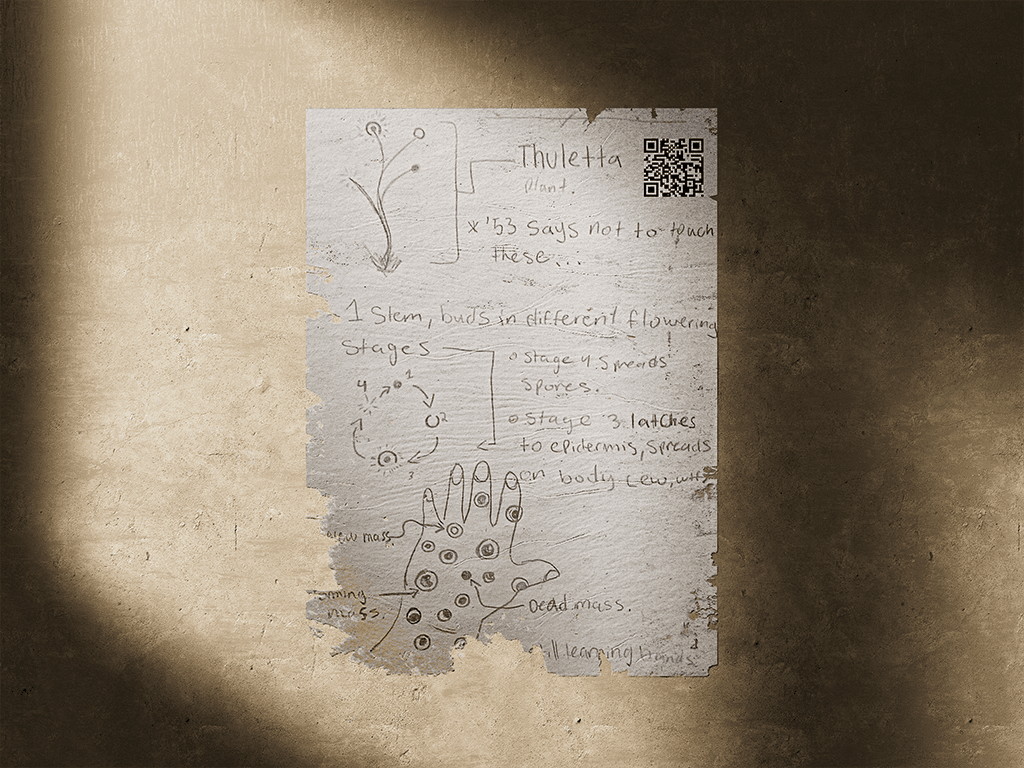 Thuletta
Plant.
x '53 Says not to touch
these...
1 Stem, buds in different flowering
Stages
o Stage 4 Spreads
Spores.
o Stage 3 latches
to epidermis, Spreads
on body (ew, wtf
4
1
2
3
mass.
mass.
Dead mass.
learning hands